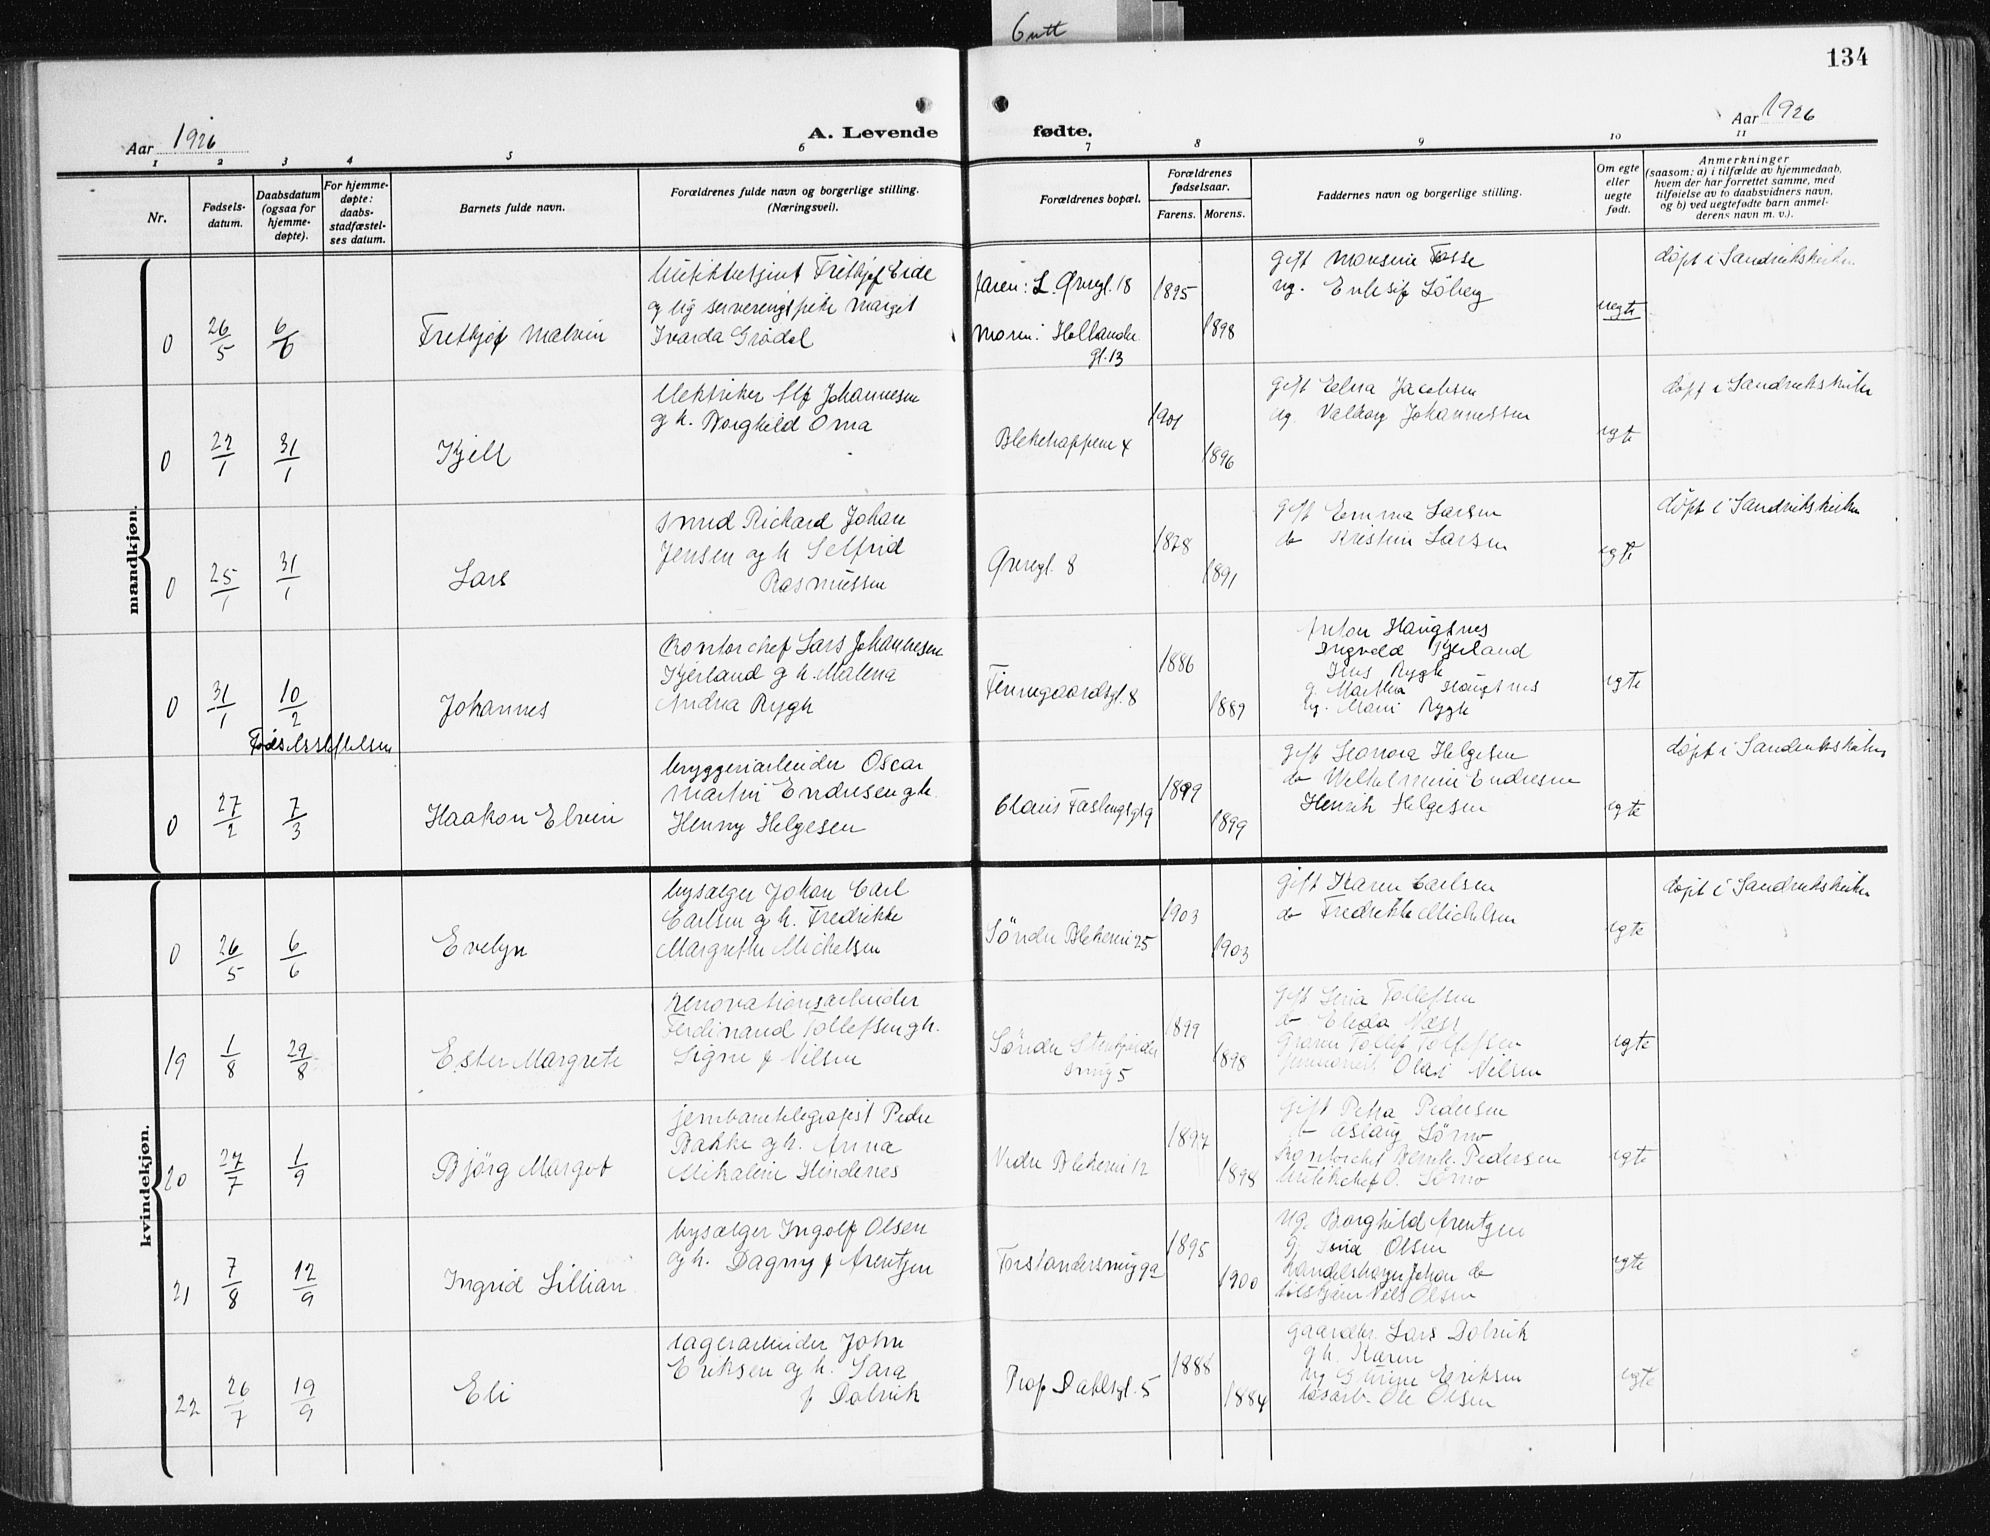 6 utt
134
Aar 1926
A. Levende
fødte.
Aar 1926
1 2 3 4 5 6 7 8 9 10 11
Nr.
Fødsels-
datum.
Daabsdatum
(ogsaa for
hjemme-
døpte).
For hjemme-
døpte:
daabs-
stadfæstel-
ses datum.
Barnets fulde navn.
Forældrenes fulde navn og borgerlige stilling.
(Næringsvei).
Forældrenes bopæl.
Forældrenes
fødselsaar.
Farens. Morens.
Faddernes navn og borgerlige stilling.
Om egte
eller
uegte
født.
Anmerkninger
(saasom: a) i tilfælde av hjemmedaab,
hvem der har forrettet samme, med
tilføielse av to daabsvidners navn,
og b) ved uegtefødte barn anmel-
derens navn m. v.).
mandkjøn.
0 26/5 6/6 Fritkjof Malvin
Fritkjof Eide
og ug serveringspike Margit
Ivarda Grødal
faren: L. Øvregt. 18
Moren: Hollander
gt. 13
1895 1898
gift Monsine Fosse
ug. Søberg
uegte
døpt i Sandvikskirken
0 22/1 31/1 Kjell
Elektriker Alf Johannesen
og h. Borghild Oma
Blekehappene 4
1901 1896
gift Elna Jacobsen
ug. Valborg Johannessen
egte
døpt i Sandvikskirken
0 25/1 31/1 Lars
smed Rickard Johan
Jensen og h Selfrid
Rasmussen
Øvregt. 8
1878 1891
gift Emma Larsen
do Kristine Larsen
egte
døpt i Sandvikskirken
0 31/1 10/2 Johannes
Kontorchef Lars Johannesen
Kjerland g h. Malena
Andrea Rygh
Finnegaardsgt. 8
1886 1889
Anton Haugsnes
Ingvald Kjerland
Jens Rygh
g. Martha Haugsnes
ug. Marie Rygh
egte
0 27/2 7/3 Haakon Elvin
bryggeriarbeider Oscar
Martin Endresen g h.
Henny Helgesen
Claus Fastingsgt 9
1899 1899
gift Leonora Helgesen
do Wilhelmine Endresen
Henrik Helgesen
egte
døpt i Sandvikskirken
kvindekjøn.
0 26/5 6/6 Evelyn
bysælger Johan Carl
Carlsen og h. Fredrikke
Margrethe Michelsen
Søndre Blekevei 25
1903 1903
gift Karen Carlsen
do Fredrikke Michelsen
egte
døpt i Sandvikskirken
19 1/8 29/8 Ester Margrete
renovationsarbeider
Ferdinand Tollefsen g h.
Signe f Nilsen
Søndre
smug 5
1899 1898
gift Lina Tollefsen
do Elida Næss
Tollef Tollefsen
Olai Nilsen
egte
20 27/7 1/9 Bjørg Margot
jernbanetelegrafist Peder
Bakke og h. Anna
Mikaline Hindenes
Nedre Blekevei 12
1897 1898
gift Petra Pedersen
do Aslaug Sørmo
Kontorchef Henrik Pedersen
butikchef O. Sørmo
egte
21 7/8 12/9 Ingrid Lillian
bysælger Ingolf Olsen
og h. Dagny f Arentzen
Forstandersmug 9a
1895 1900
ug. Borghild Arentzen
g. Olsen
Johan do
Nils Olsen
egte
22 26/7 19/9 Eli
lagerarbeider John
Eriksen og h. Sara
f Dolvik
Prof Dahlsgt. 5
1888 1884
gaardbr. Lars Dolvik
g h. Karen
ug Eriksen
løsarb. Ole Olsen
egte